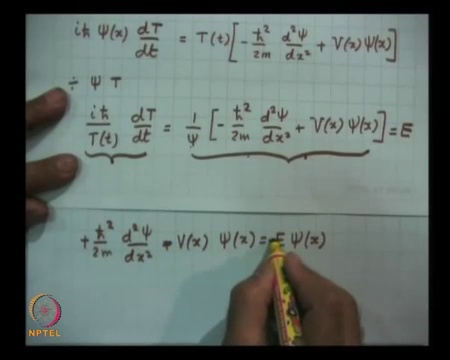 iħ Ψ(x) dT/dt = T(t) [ - ħ²/2m d²Ψ/dx² + V(x) Ψ(x) ]
÷ Ψ T
iħ/T(t) dT/dt = 1/Ψ [ - ħ²/2m d²Ψ/dx² + V(x) Ψ(x) ] = E
+ ħ²/2m d²Ψ/dx² - V(x) Ψ(x) = - E Ψ(x)
NPTEL